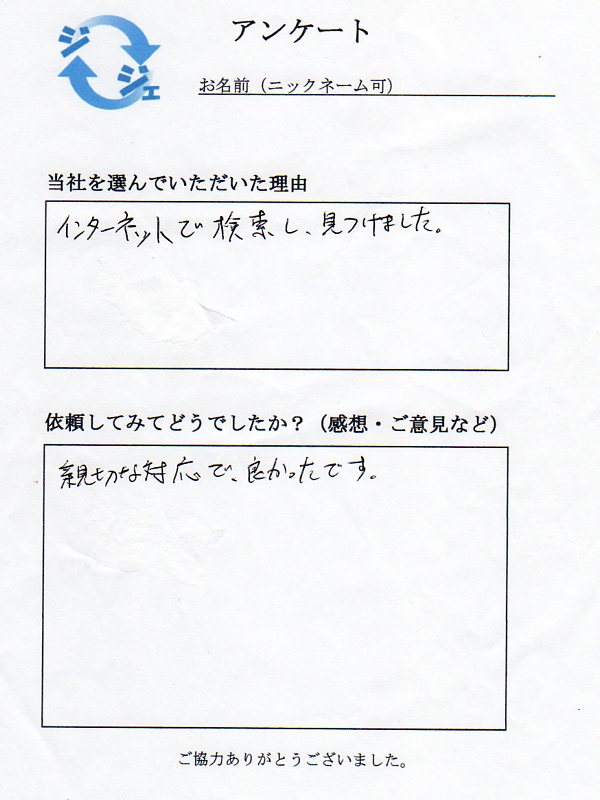 ジジェ
アンケート
お名前（ニックネーム可）
当社を選んでいただいた理由
インターネットで検索し、見つけました。
依頼してみてどうでしたか？（感想・ご意見など）
親切な対応で、良かったです。
ご協力ありがとうございました。